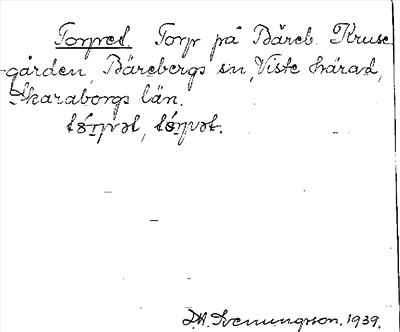 Torpet. Torp på Bäreb. Kruse-
gården, Bärebergs sn, Viste härad,
Skaraborgs län.
D.A. Svenungsson. 1939.